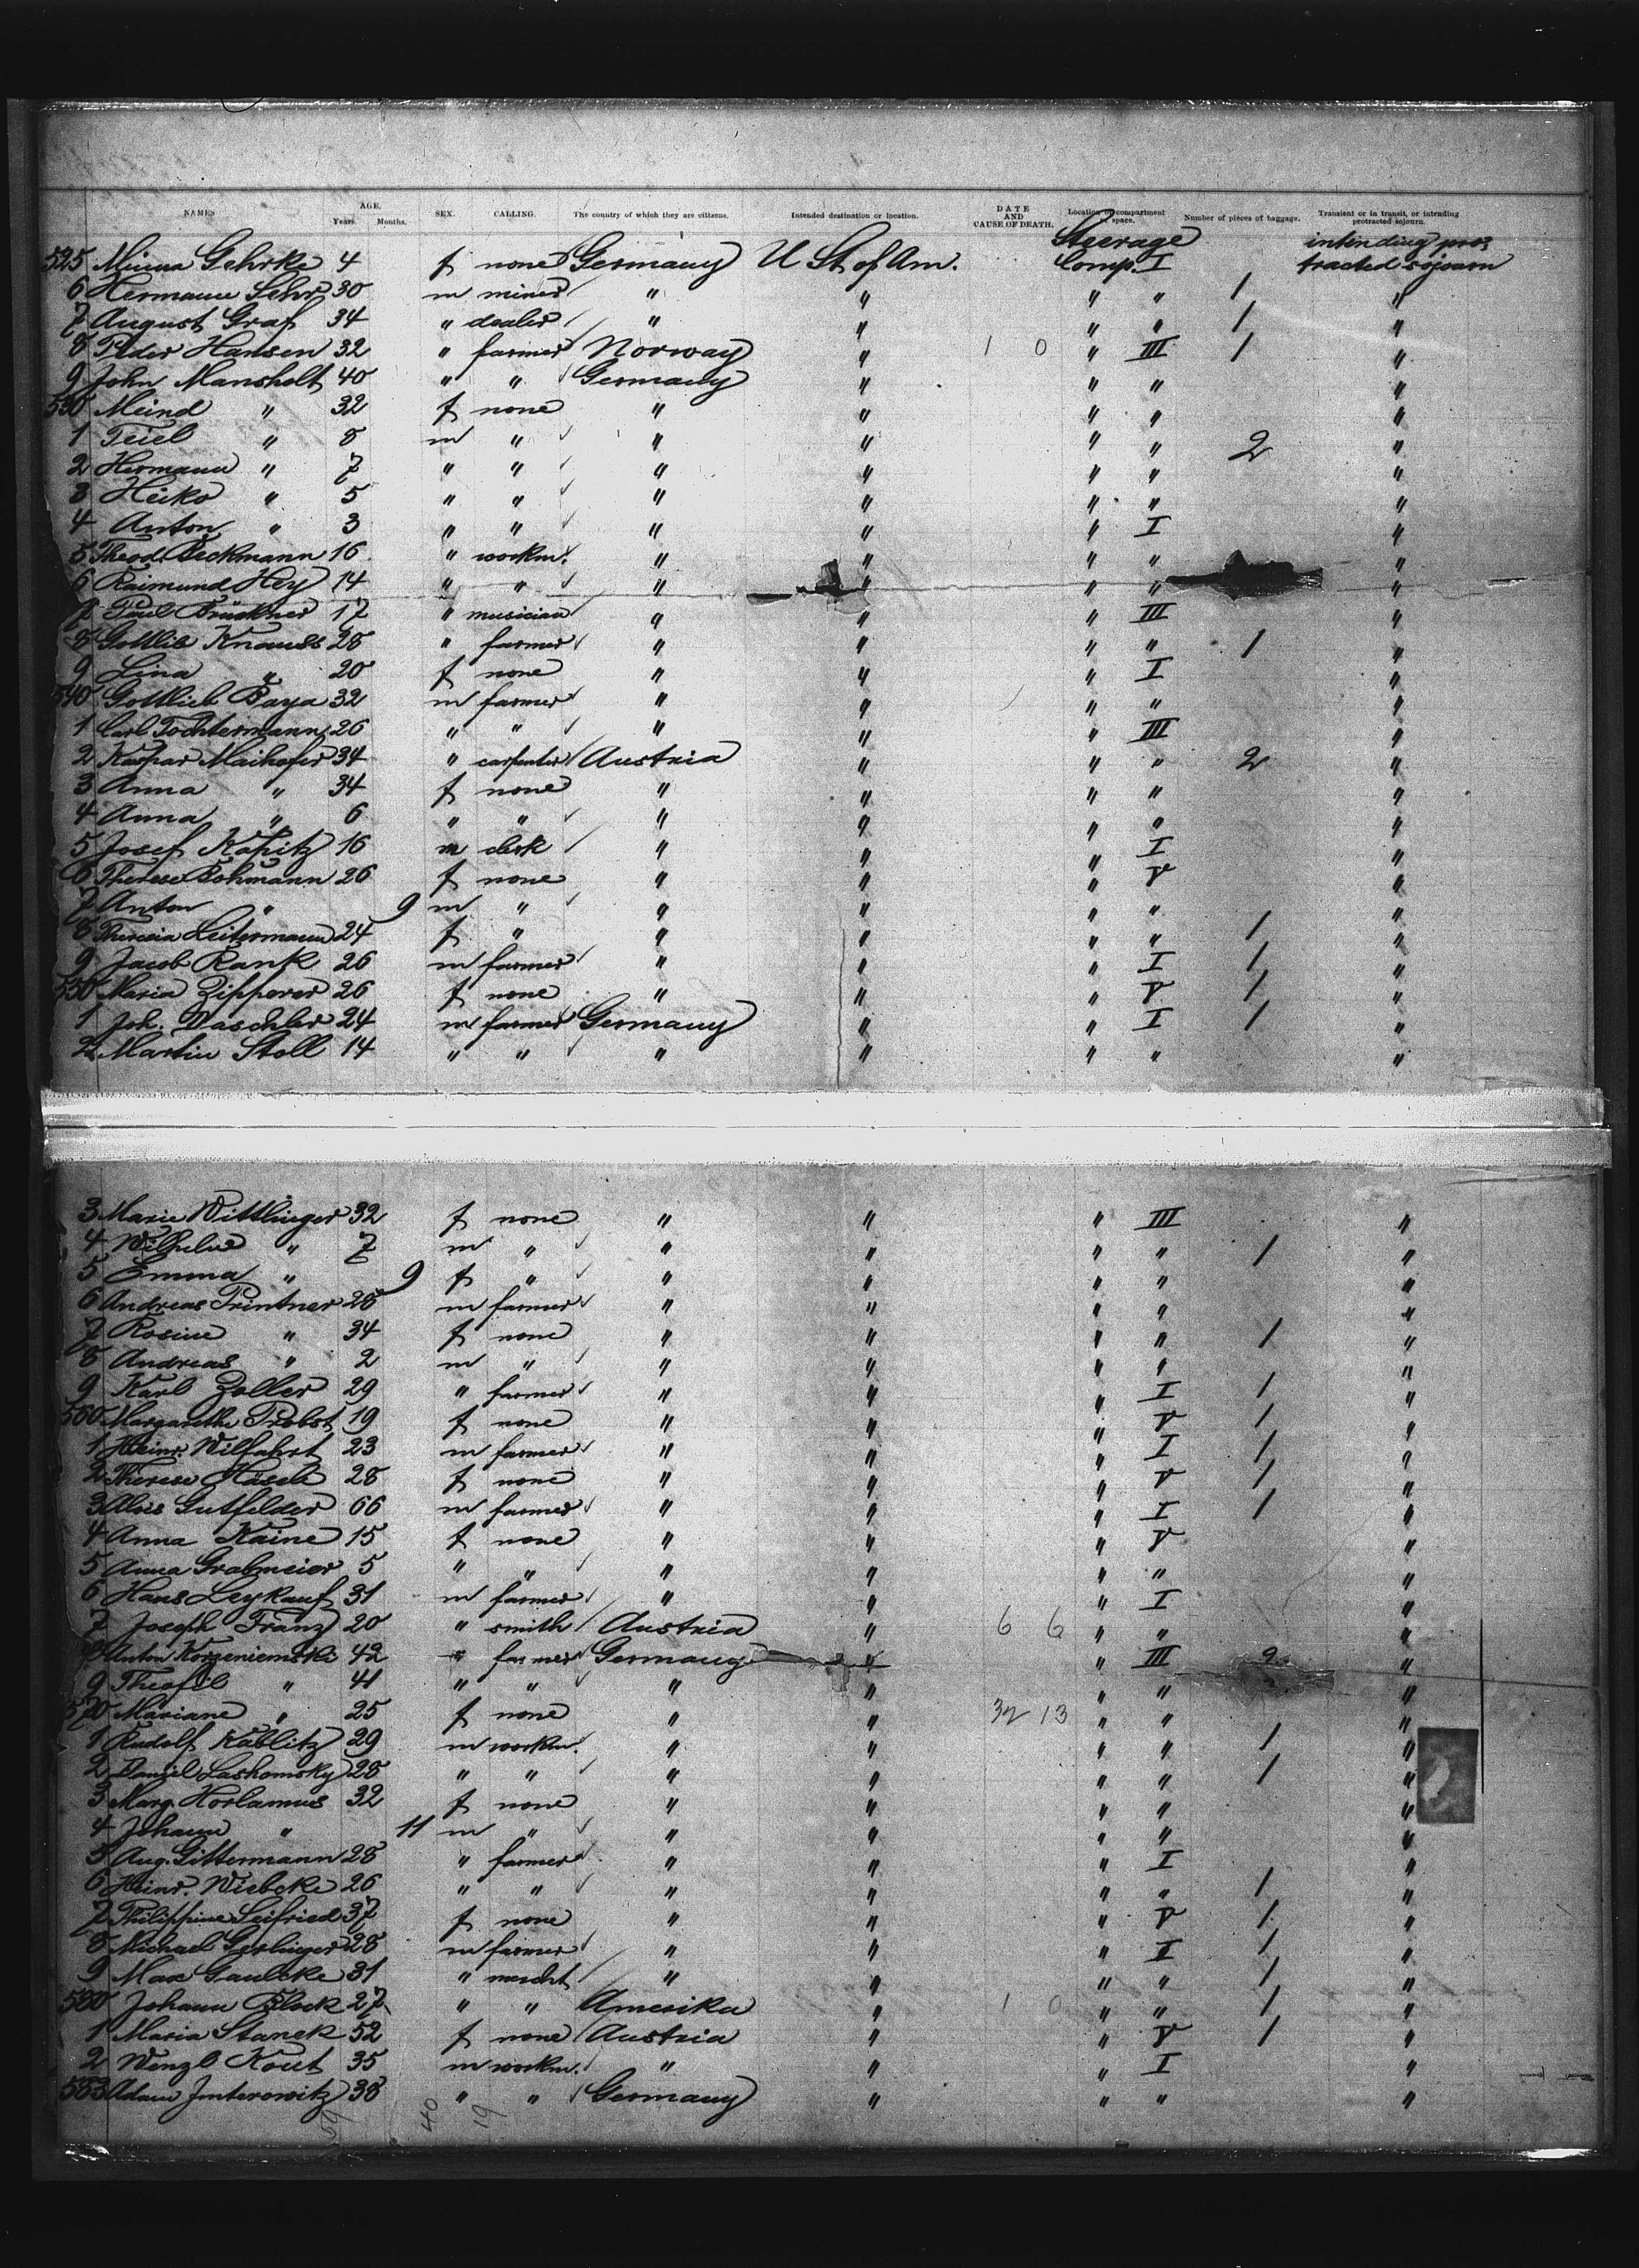 NAMES AGE. Years. Months. SEX. CALLING. The country of which they are citizens. Intended destination or location. DATE AND CAUSE OF DEATH. Location or compartment space. Number of pieces of baggage. Transient or in transit, or intending protracted sojourn.
Steerage intending pro-
525 Minna Gehrke 4 f none Germany U St of Am. Comp. I tracted sojourn
6 Hermann Sehr 30 m miner " " " " 1 "
7 August Graf 34 " dealer " " " " 1 "
8 Peder Hansen 32 " farmer Norway " 1 0 " III 1 "
9 John Mansholt 40 " " Germany " " " "
530 Meind " 32 f none " " " " "
1 Teiel " 8 m " " " " " 2 "
2 Hermann " 7 " " " " " " "
3 Heiko " 5 " " " " " " "
4 Anton " 3 " " " " " I "
5 Theod. Beckmann 16 " workm. " " " " "
6 Raimund Hey 14 " " " " " " "
7 Paul Brückner 17 " musician " " " III "
8 Gottlib Knauss 28 " farmer " " " " 1 "
9 Lina " 20 f none " " " I "
540 Gottlieb Baya 32 m farmer " " " " "
1 Carl Tochtermann 26 " " " " " III "
2 Kaspar Maihofer 34 " carpenter Austria " " " 2 "
3 Anna " 34 f none " " " " "
4 Anna " 6 " " " " " " "
5 Josef Kapitz 16 m clerk " " " I "
6 Therese Bohmann 26 f none " " " V "
7 Anton " 9 m " " " " " "
8 Theresia Leitermann 24 f " " " " " 1 "
9 Jacob Rank 26 m farmer " " " I 1 "
550 Maria Zipperer 26 f none " " " V 1 "
1 Joh. Daschler 24 m farmer Germany " " I 1 "
2 Martin Stoll 14 " " " " " " "
3 Marie Wittlinger 32 f none " " " III "
4 Wilhelm " 7 m " " " " " 1 "
5 Emma " 9 f " " " " " "
6 Andreas Printner 28 m farmer " " " " "
7 Rosine " 34 f none " " " " 1 "
8 Andreas " 2 m " " " " " "
9 Karl Zoller 29 " farmer " " " I 1 "
560 Margarethe Probst 19 f none " " " V 1 "
1 Heinr. Wilfahrt 23 m farmer " " " I 1 "
2 Therese Häsele 28 f none " " " V 1 "
3 Alois Gutfelder 66 m farmer " " " I 1 "
4 Anna Kaine 15 f none " " " V "
5 Anna Grabmeier 5 " " " " " " "
6 Hans Leykauf 31 m farmer " " " I "
7 Joseph Franz 20 " smith Austria " 6 6 " " "
8 Anton Korzeniemski 42 " farmer Germany " " III 2 "
9 Theofil " 41 " " " " " " "
570 Mariane " 25 f none " " 32 13 " " "
1 Rudolf Kablitz 29 m workm. " " " " 1 "
2 Daniel Lashomsky 28 " " " " " " 1 "
3 Marg. Horlamus 32 f none " " " " "
4 Johann " 11 m " " " " " "
5 Aug. Gittermann 28 " farmer " " " I "
6 Heinr. Wiebcke 26 " " " " " " 1 "
7 Philippine Seifried 37 f none " " " V 1 "
8 Michael Gerlinger 28 m farmer " " " I 1 "
9 Max Gaulcke 31 " mercht " " " " 1 "
580 Johann Block 27 " " Amerika " 1 0 " " 1 "
1 Maria Stanek 52 f none Austria " " V 1 "
2 Wenzl Kout 35 m workm. " " " I "
583 Adam Jnterowitz 38 " " Germany " " " "
59 40 19